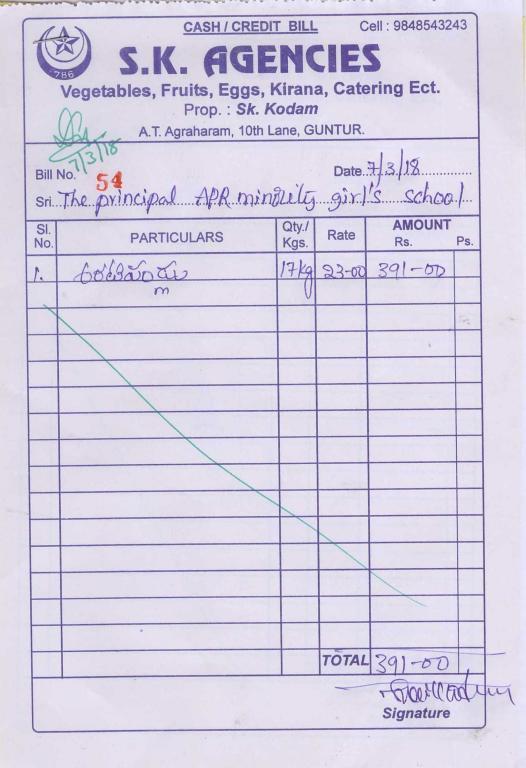 CASH / CREDIT BILL Cell : 9848543243
786
S.K. AGENCIES
Vegetables, Fruits, Eggs, Kirana, Catering Ect.
Prop. : Sk. Kodam
A.T. Agraharam, 10th Lane, GUNTUR.
7/3/18
Bill No. 54 Date 7/3/18
Sri. The principal APR minority girl's school
Sl. No. PARTICULARS Qty./ Kgs. Rate AMOUNT Rs. Ps.
1. అరటిపండ్లు 17kg 23-00 391-00
TOTAL 391-00
Signature